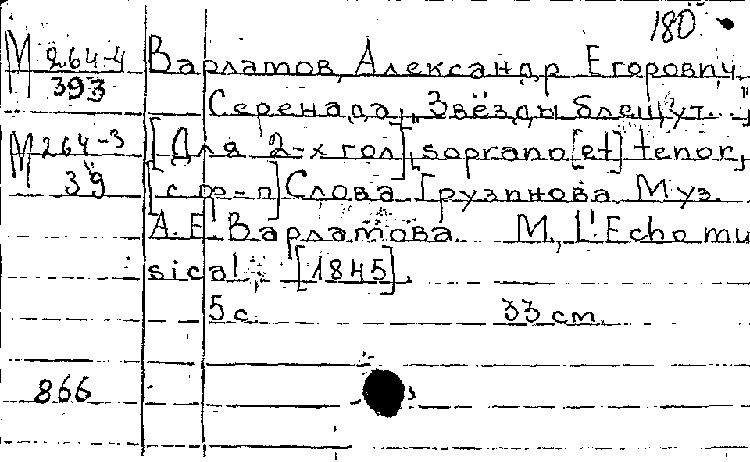 180
М 264-4 Варламов, Александр Егорович.
393 Серенада „Звёзды блещут..."
М 264-3 [Для 2-х гол], soprano [et] tenor,
39 [с ф-п] Слова Грузинова Муз.
А. Е. Варламова. М., L'Echo mu
sical [1845].
5 с. 33 cm.
866